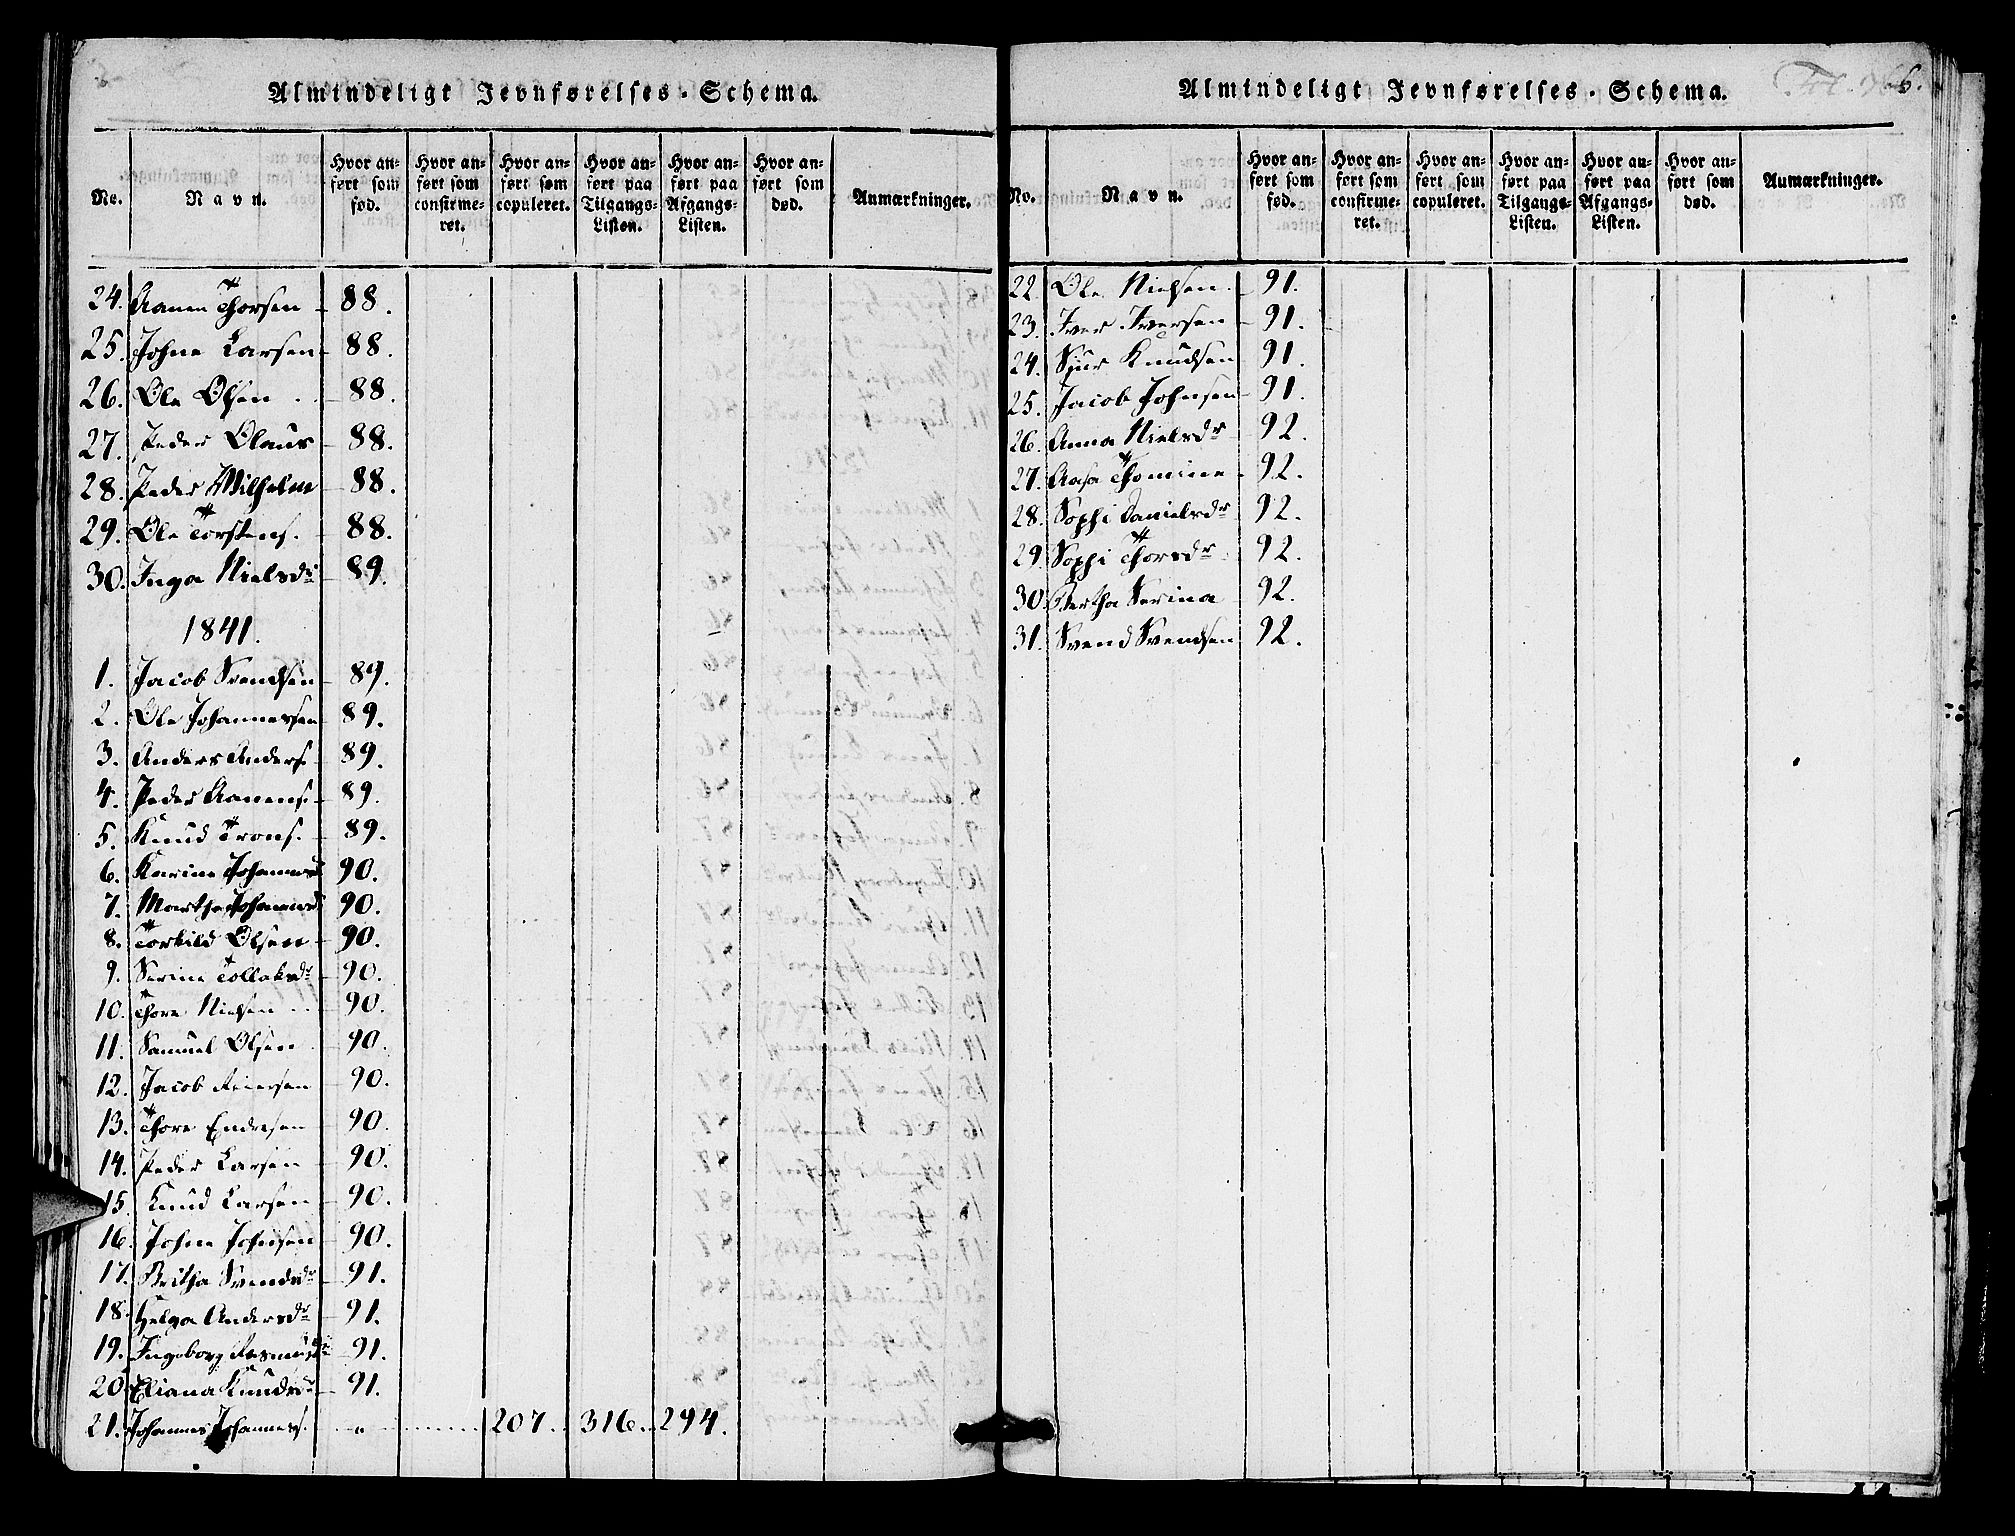 Almindeligt Jevnførelses-Schema.
No. Navn. Hvor anført som fød. Hvor anført som confirmeret. Hvor anført som copuleret. Hvor anført paa Tilgangs-Listen. Hvor anført paa Afgangs-Listen. Hvor anført som død. Anmærkninger.
24. Aanen Thorsen 88.
25. Johne Larsen 88.
26. Ole Olsen 88.
27. Peder Olaus 88.
28. Peder Wilhelm 88.
29. Ole Torstens. 88.
30. Inga Nielsdr 89.
1841.
1. Jacob Svendsen 89.
2. Ole Johannesen 89.
3. Anders Anders. 89.
4. Peder Aanens. 89.
5. Knud Trons. 89.
6. Karine Johannesd 90.
7. Martha Johannesd 90.
8. Torkild Olsen 90.
9. Serine Tollaksdr 90.
10. Thore Nielsen 90.
11. Samuel Olsen 90.
12. Jacob Reiersen 90.
13. Thore Endresen 90.
14. Peder Larsen 90.
15. Knud Larsen 90.
16. Johne Johnsen 90.
17. Britha Svendsdr 91.
18. Helga Andersdr 91.
19. Ingeborg Rasmusdr 91.
20. Eliana Knudsdr 91.
21. Johannes Johanness. " 207. 316. 294.
Almindeligt Jevnførelses-Schema.
No. Navn. Hvor anført som fød. Hvor anført som confirmeret. Hvor anført som copuleret. Hvor anført paa Tilgangs-Listen. Hvor anført paa Afgangs-Listen. Hvor anført som død. Anmærkninger.
22. Ole Nielsen 91.
23. Iver Iversen 91.
24. Sjur Knudsen 91.
25. Jacob Johnsen 91.
26. Anna Nielsdr 92.
27. Aasa Thomine 92.
28. Sophi Danielsdr 92.
29. Sophi Thorsdr 92.
30. Bertha Serina 92.
31. Svend Svendsen 92.